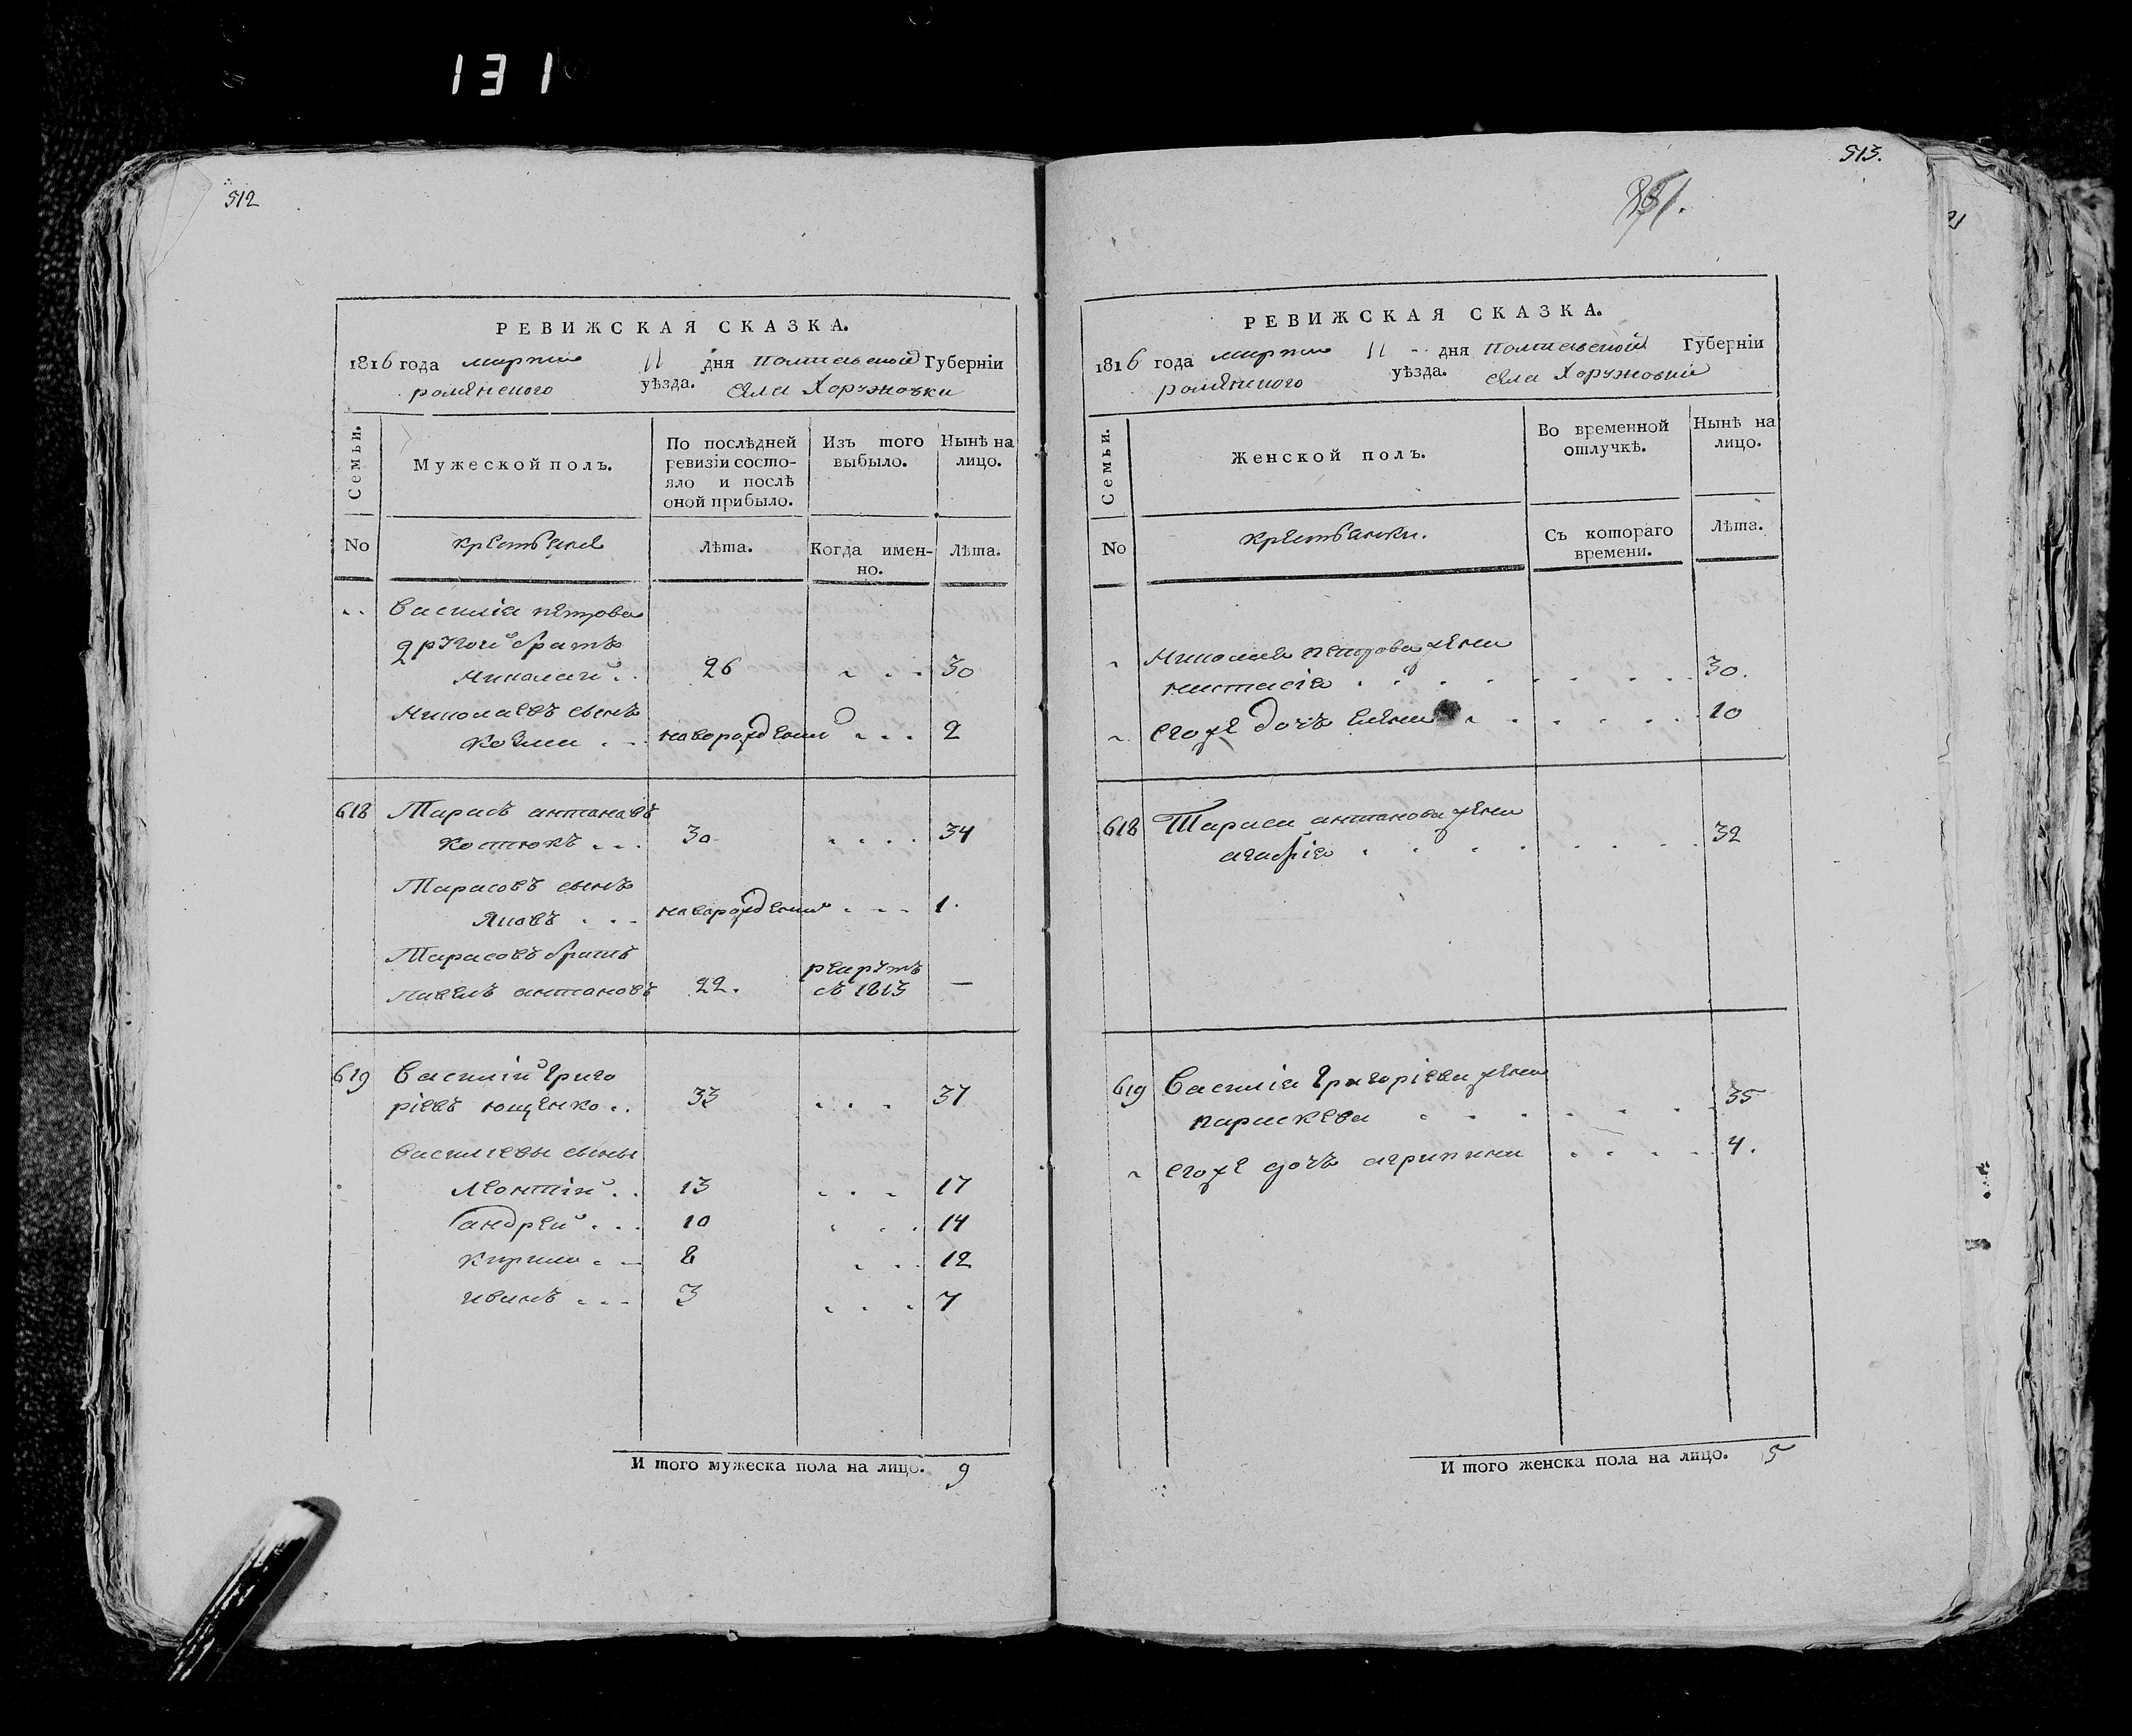 131
512
РЕВИЖСКАЯ СКАЗКА.
1816 года марта 11 дня полтавской Губерніи
роменского уѣзда. села Хоружовки
Семьи.
Мужеской полъ.
По послѣдней ревизіи состо-
яло и послѣ
оной прибыло.
Изъ того
выбыло.
Нынѣ на
лицо.
No
крестьяне
Лѣта.
Когда имен-
но.
Лѣта.
Василіа петрова
другой братъ
Николай 26 30
Николаевъ сынъ
Козма новорожденый 2
618 Тарасъ антоновъ
Костюкъ 30 34
Тарасовъ сынъ
Яковъ новорожденый 1
Тарасовъ братъ
Павелъ антоновъ 22. рекрутъ
въ 1813 —
619 Василій Григо
ріевъ ющенко 33 37
василіевы сыны
Леонтій 13 17
андрей 10 14
кирило 8 12
иванъ 3 7
И того мужеска пола на лицо. 9
513.
РЕВИЖСКАЯ СКАЗКА.
1816 года марта 11 дня полтавской Губерніи
роменского уѣзда. села Хоружовки
Семьи.
Женской полъ.
Во временной
отлучкѣ.
Нынѣ на
лицо.
No
крестьянки.
Съ котораго
времени.
Лѣта.
Николая петрова жена
настасіа 30.
егоже дочъ елена 10
618 Тараса антонова жена
агафіа 32
619 Василіа Григоріева жена
параскева 35
егоже дочъ агрипина 4.
И того женска пола на лицо. 5